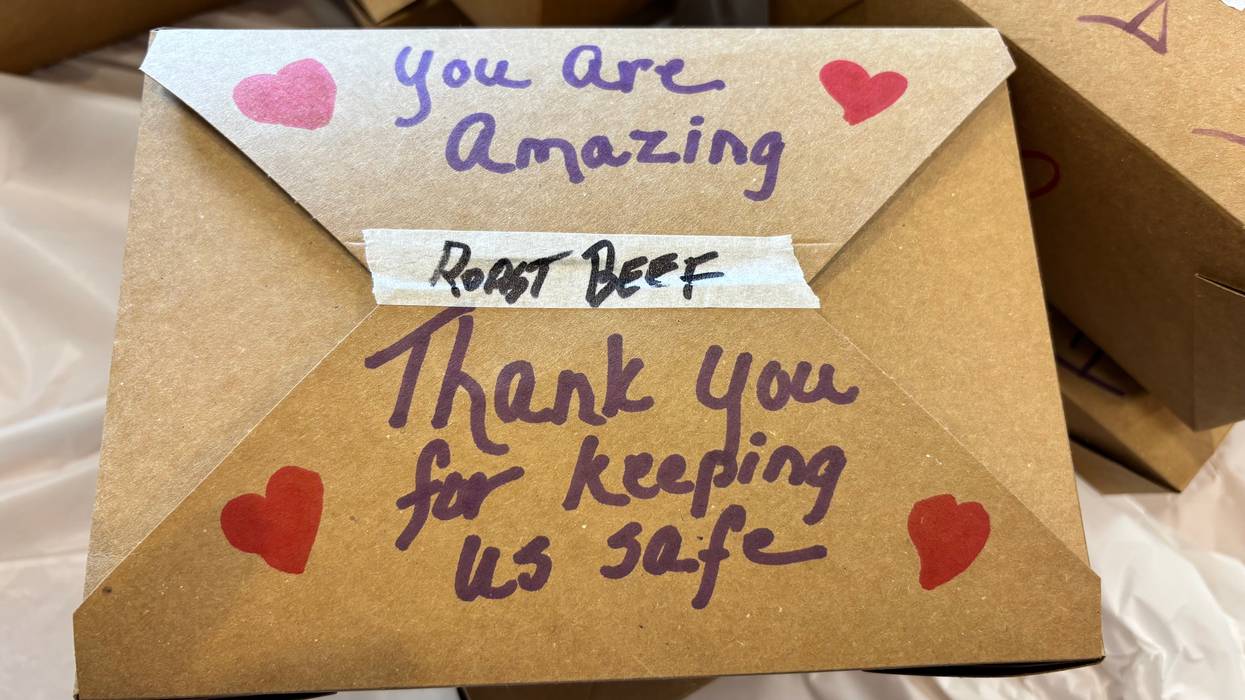 you are
Amazing
ROAST BEEF
Thank you
for keeping
us safe